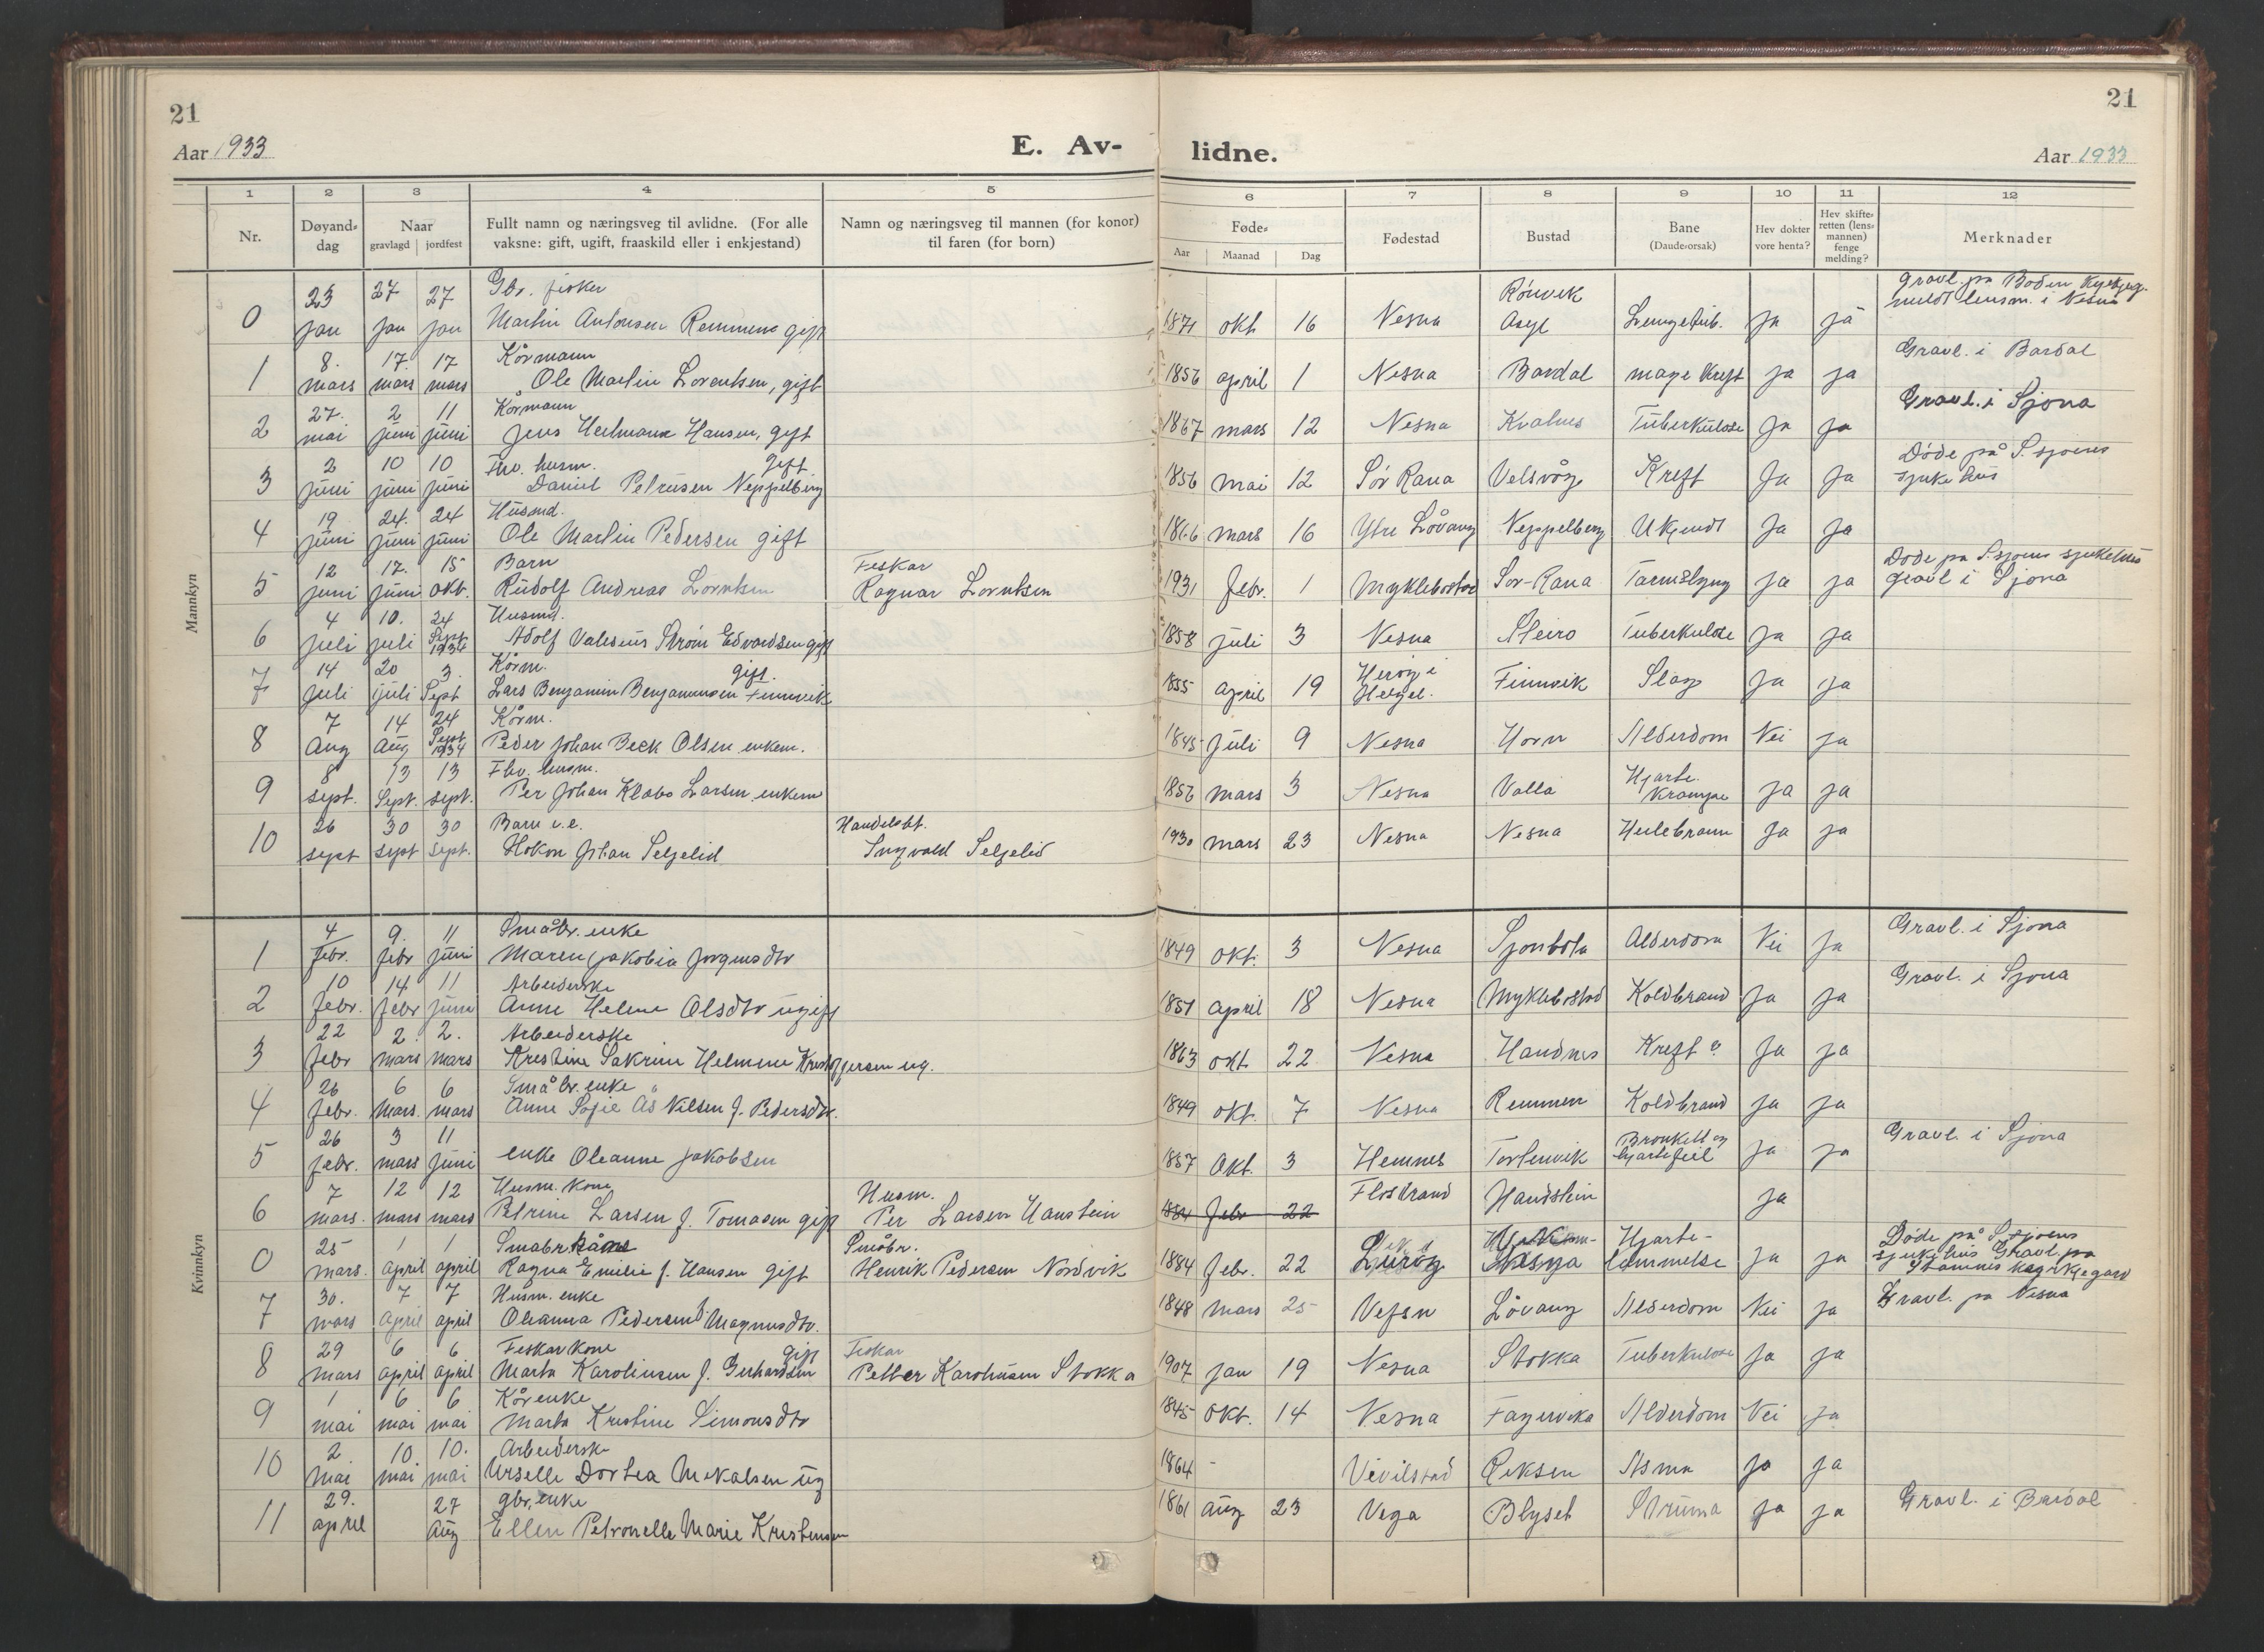 21
21
Aar 1933
E. Av-
lidne.
Aar 1933
1
2
3
4
5
6
7
8
9
10
11
12
Nr.
Døyand-
dag
Naar
gravlagd
jordfest
Fullt namn og næringsveg til avlidne. (For alle
vaksne: gift, ugift, fraaskild eller i enkjestand)
Namn og næringsveg til mannen (for konor)
til faren (for born)
Føde-
Aar
Maanad
Dag
Fødestad
Bustad
Bane
(Daude-orsak)
Hev dokter
vore henta?
Hev skifte-
retten (lens-
mannen)
fenge
melding?
Merknader
Mannkyn
0 23 jan 27 jan 27 jan Gbr. fisker
Martin Antonsen Remmen gift 1871 okt 16 Nesna Rónvik Asyl Lungetub. ja ja gravl. på Bodin
meldt lensm. i Nesna
1 8. mars 17. mars 17 mars Kårmann
Ole Martin Lorentsen, gift 1856 april 1 Nesna Bardal mage kreft ja ja Gravl. i Bardal
2 27. mai 2 juni 11 juni Kårmann
Jens Hansen, gift 1867 mars 12 Nesna Kvalnes Tuberkulose ja ja Gravl. i Sjona
3 2 juni 10 juni 10 juni Fhv. husm. gift
Daniel Petrusen Neppelberg 1856 mai 12 Sör Rana Velsvåg Kreft Ja Ja Döde på S.sjoens
sjukehus
4 19 juni 24. juni 24 juni Husmd.
Ole Martin Pedersen gift 1866 mars 16 Ytre Lövang Neppelberg Ukjendt Ja ja
5 12 juni 17. juni 15 okt. Barn
Rudolf Andreas Lorntsen Feskar
Ragnar Lorntsen 1931 febr. 1 Myklebostad Sör-Rana Tarmslyng ja ja Döde på S.sjoens sjukehus
gravl i Sjona
6 4 juli 10. juli 24 Sept 1934 Husmd.
Adolf Valesius Ström Edvardsen gift 1858 juli 3 Nesna Steiro Tuberkulose ja ja
7 14 juli 20 juli 3. Sept Kårm. gift.
Lars Benjamin Benjaminsen Finnvik 1855 april 19 Heröy i
Helgel. Finnvik Slag ja ja
8 7 Aug 14 Aug 24 Sept 1934 Kårm.
Peder Johan Beck Olsen enkem. 1845 juli 9 Nesna Horn Alderdom Nei ja
9 8 sept. 13 Sept. 13 sept. Fhv. husm.
Per Johan Klabo Larsen enkem 1856 mars 3 Nesna Valla Hjarte.
krampe ja ja
10 26 sept 30 sept 30 sept. Barn u.e.
Hokon Johan Seljelid Handelsbt.
Ingvald Seljelid 1930 mars 23 Nesna Nesna Ja ja
Kvinnkyn
1 4 febr. 9. febr 11 juni Småbr. enke
Maren Jakobia Jörgensdtr 1849 okt. 3 Nesna Sjonbotn Alderdom Nei Ja Gravl. i Sjona
2 10 febr. 14 febr 11 juni Arbeiderske
Anne Helene Olsdtr ugift 1851 april 18 Nesna Myklebostad Koldbrand ja ja Gravl. i Sjona
3 22 febr 2. mars 2. mars Arbeiderske
Kristine Sakrine Helmine Kristoffersen ug. 1863 okt 22 Nesna Handnes Kreft ? ja ja
4 26 febr. 6 mars. 6 mars Småbr. enke
Anne Sofie Ås Nilsen f. Pedersdtr. 1849 okt. 7 Nesna Remmen Koldbrand ja ja
5 26 febr. 3 mars 11 juni enke Oleanne Jakobsen 1857 Okt. 3 Hemnes Tortenvik Bronkitt og
hjartefeil ja ja Gravl. i Sjona
6 7 mars. 12 mars 12 mars Husm. kone
Petrine Larsen f. Tomasen gift Husm.
Per Larsen Hanstein 1884 febr 22 Flostrand Handstein ja
0 25 mars. 1 april 1 april Småbr.kåna
Ragna Emilie f. Hansen gift Småbr.
Henrik Pedersen Nordvik 1884 febr. 22 Luröy Nesna Hjarte-
lammelse ja ja Döde på S.sjoens
sjukehus Gravl. på
Stamnes kyrkjegard
7 30. mars 7 april 7 april Husm. enke
Oleanna Pedersen f. Magnusdtr. 1848 mars 25 Vefsn Lövang Alderdom Nei ja Gravl. på Nesna
8 29 mars 6 april 6 april Feskarkone gift
Marta Karolinsen f. Gerhardsen Feskar
Petter Karolinsen Stokka 1907 jan 19 Nesna Stokka Tuberkulose ja ja
9 1 mai 6 mai 6 mai Kårenke
Marta Kristine Simonsdtr 1845 okt. 14 Nesna Fagervika Alderdom Nei ja
10 2 mai 10. mai 10. mai Arbeiderske
Urselle Dortea Mikalsen ug 1864 - Vevilstad Reksen Asma ja ja
11 29. april 27 aug gbr. enke
Ellen Petronelle Marie Kristensen 1861 aug 23 Vega Blyset Struma ja ja Gravl. i Bardal